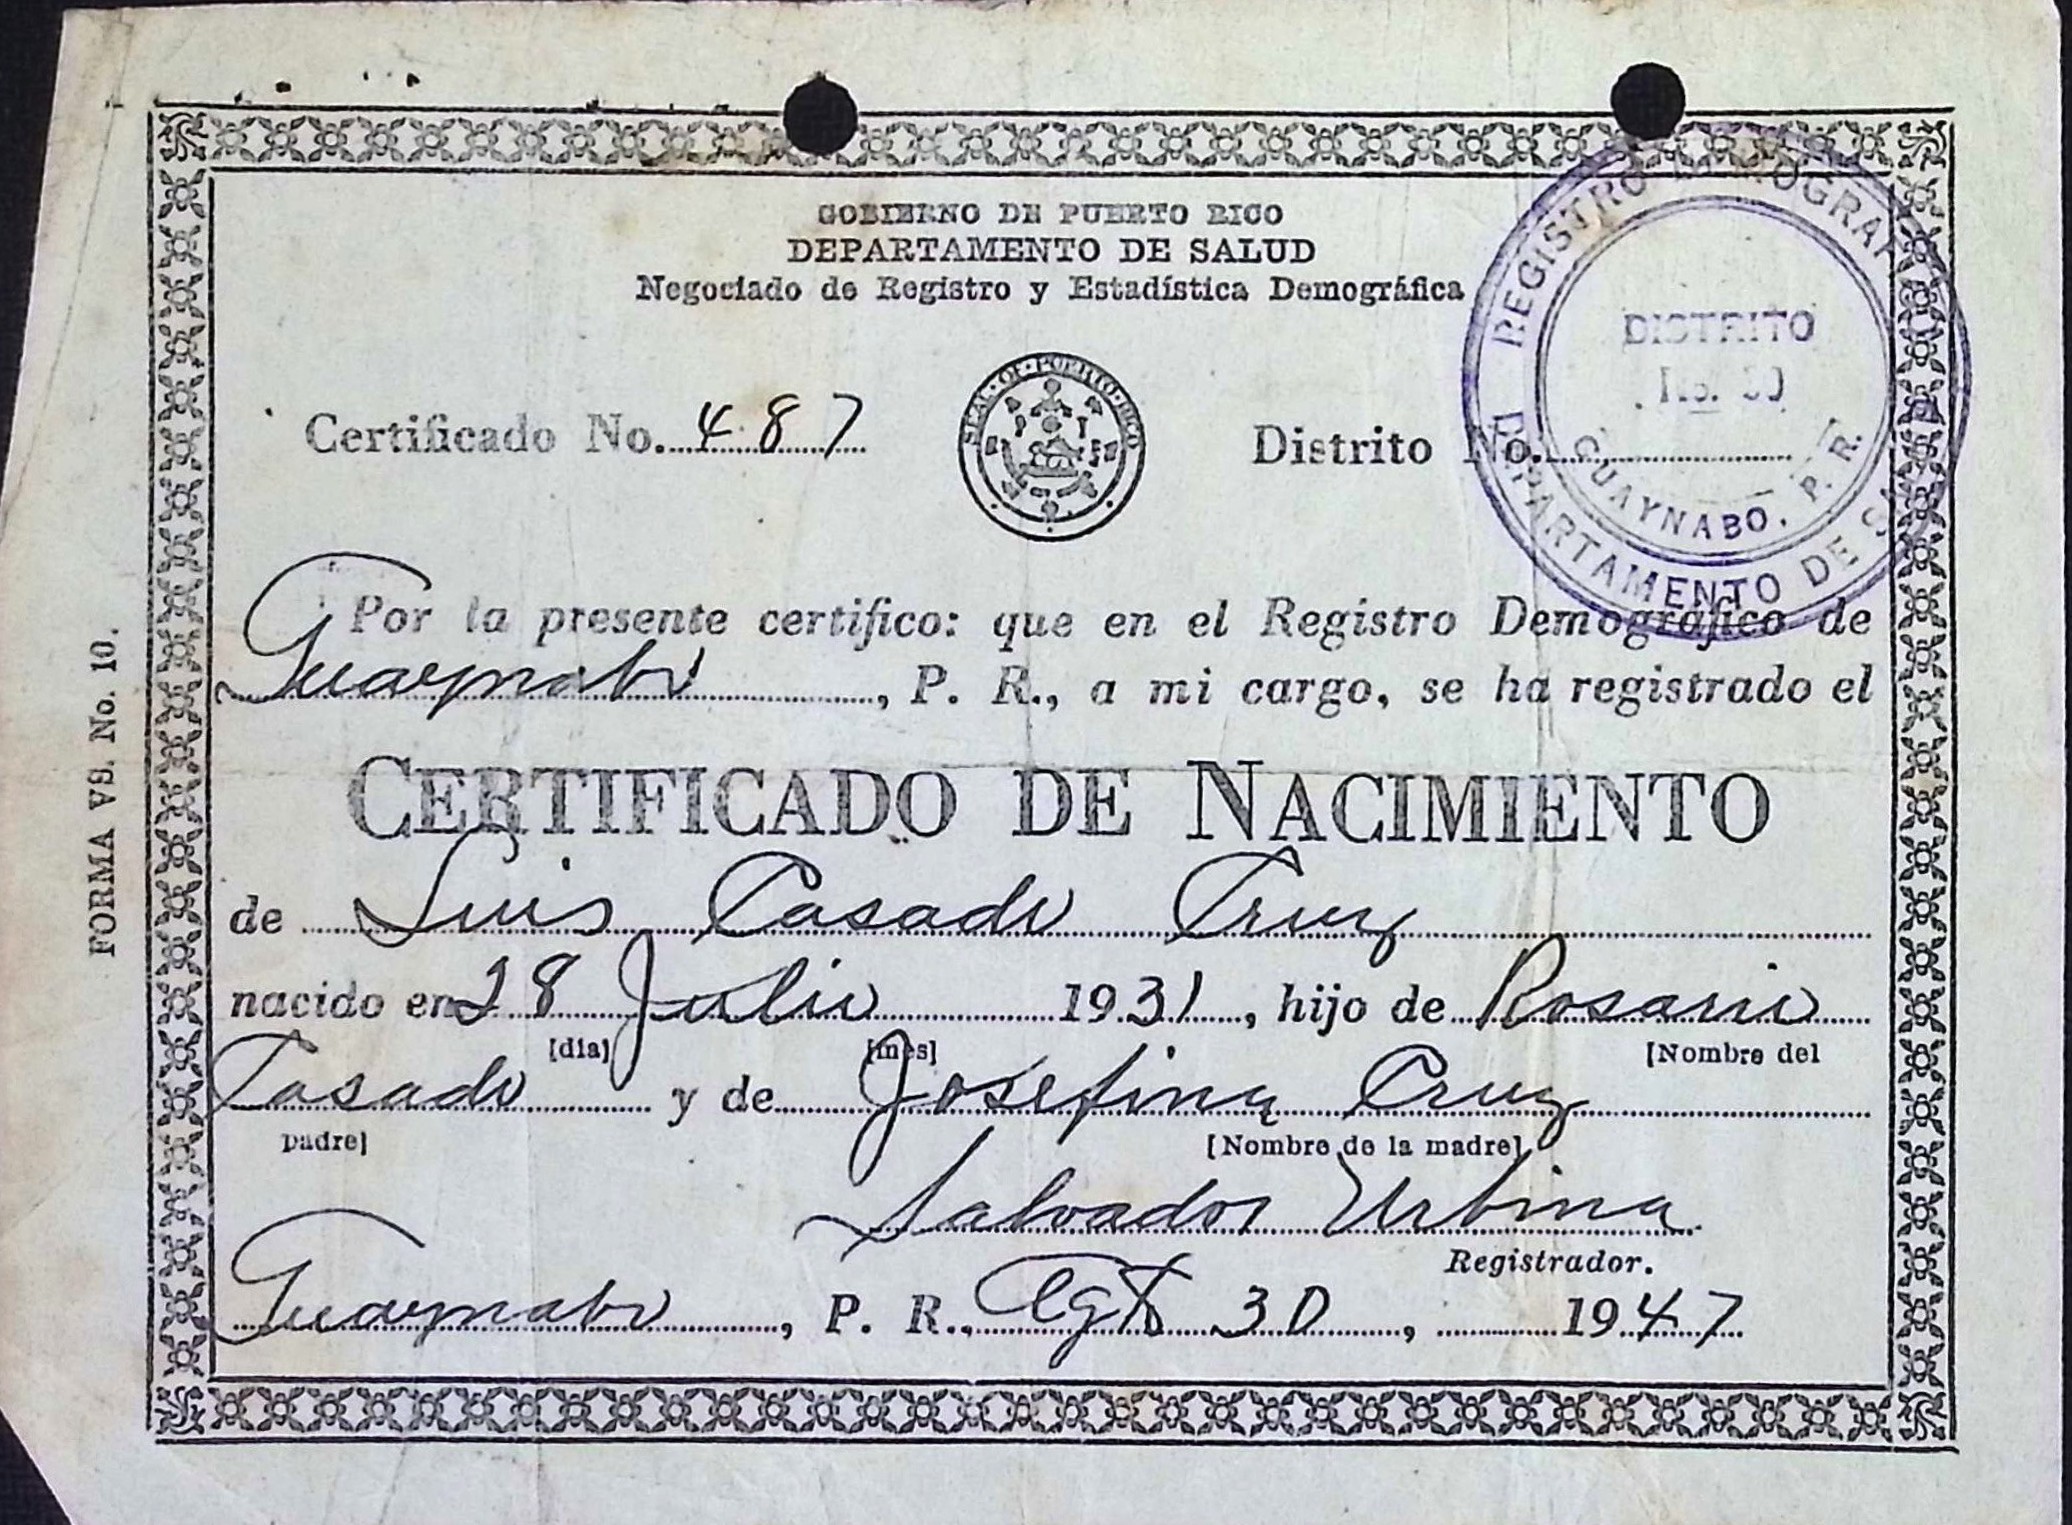 GOBIERNO DE PUERTO RICO
DEPARTAMENTO DE SALUD
Negociado de Registro y Estadística Demográfica
REGISTRO DEMOGRAF
DISTRITO
No.
GUAYNABO, P. R.
DEPARTAMENTO DE SA
SEAL · OF · PUERTO · RICO
Certificado No. 487
Distrito No.
Por la presente certifico: que en el Registro Demográfico de
Guaynabo, P. R., a mi cargo, se ha registrado el
CERTIFICADO DE NACIMIENTO
de Luis Casado Cruz
nacido en 28 Julio 1931, hijo de Rosario
[día] [mes] [Nombre del
Casado y de Josefina Cruz
padre] [Nombre de la madre]
Salvador Urbina
Registrador.
Guaynabo, P. R., Agt 30, 1947
FORMA VS. No. 10.